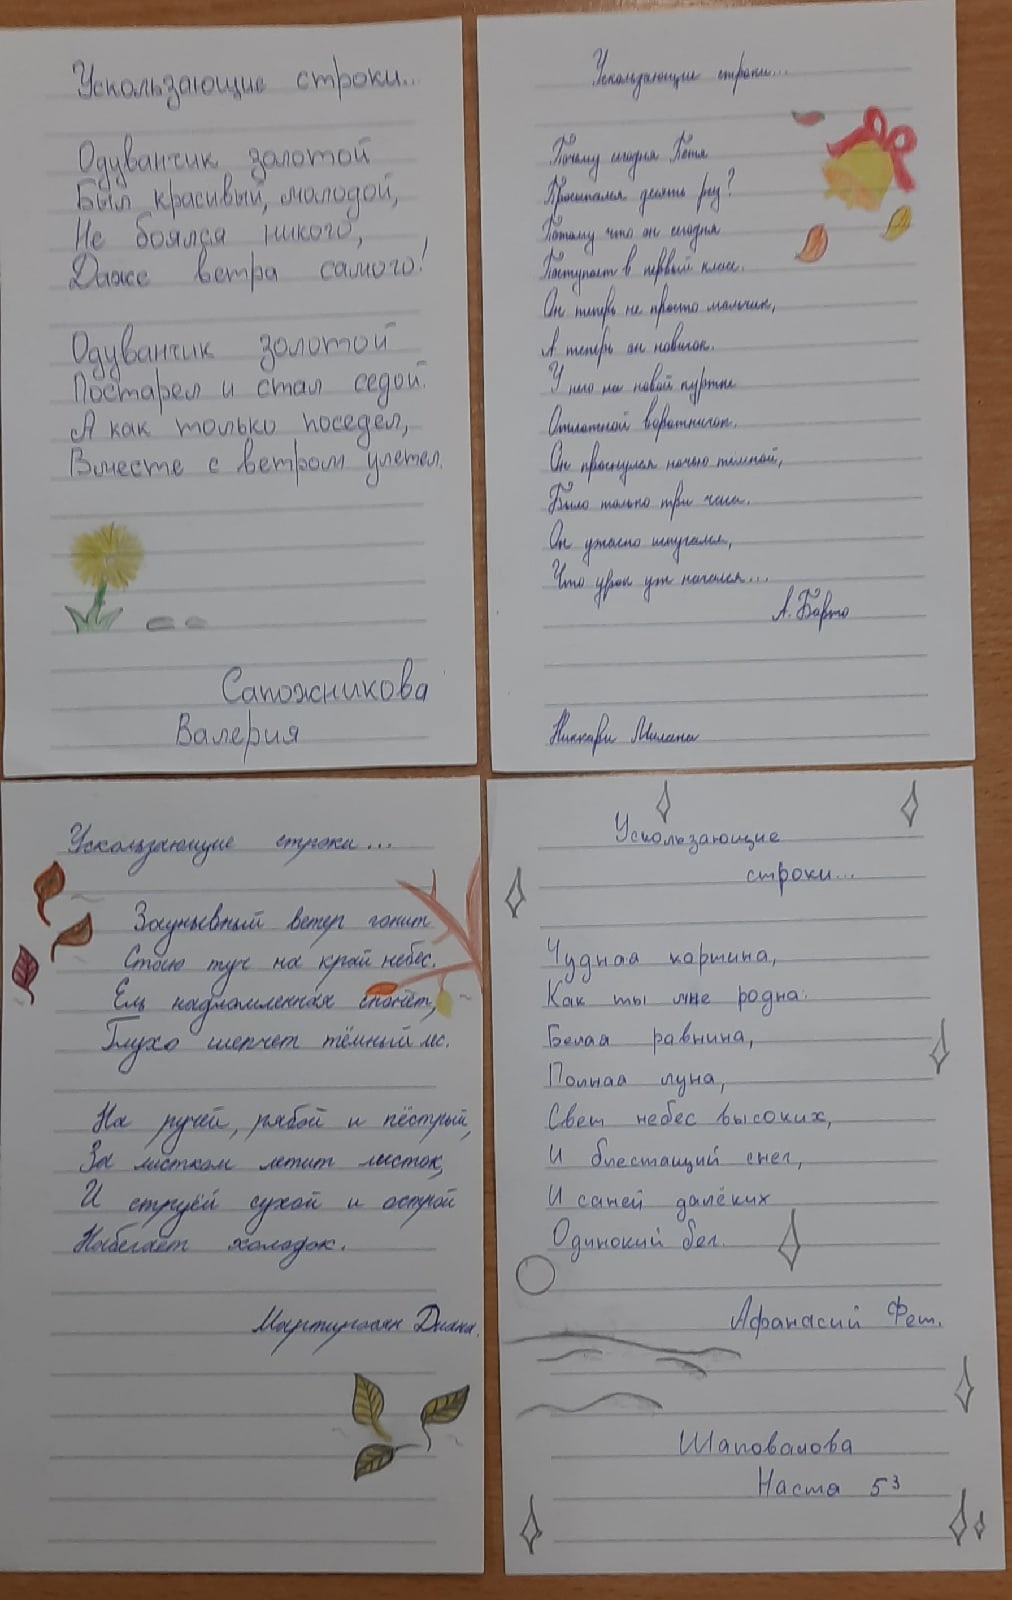 Ускользающие строки...
Одуванчик золотой
Был красивый, молодой,
Не боялся никого,
Даже ветра самого!
Одуванчик золотой
Постарел и стал седой.
А как только поседел,
Вместе с ветром улетел.
Сапожникова
Валерия
Ускользающие строки...
Почему сегодня Петя
Просыпался десять раз?
Потому что он сегодня
Поступает в первый класс.
Он теперь не просто мальчик,
А теперь он новичок.
У него на новой куртке
Отложной воротничок.
Он проснулся ночью тёмной,
Было только три часа.
Он ужасно испугался,
Что урок уж начался...
А. Барто
Милана
Ускользающие строки...
Заунывный ветер гонит
Стаю туч на край небес.
Ель надломленная стонет,
Глухо шепчет тёмный лес.
На ручей, рябой и пёстрый,
За листком летит листок,
И струёй сухой и острой
Набегает холодок.
Мартиросян Диана.
Ускользающие
строки...
Чудная картина,
Как ты мне родна:
Белая равнина,
Полная луна,
Свет небес высоких,
И блестящий снег,
И саней далёких
Одинокий бег.
Афанасий Фет.
Шаповалова
Настя 5³